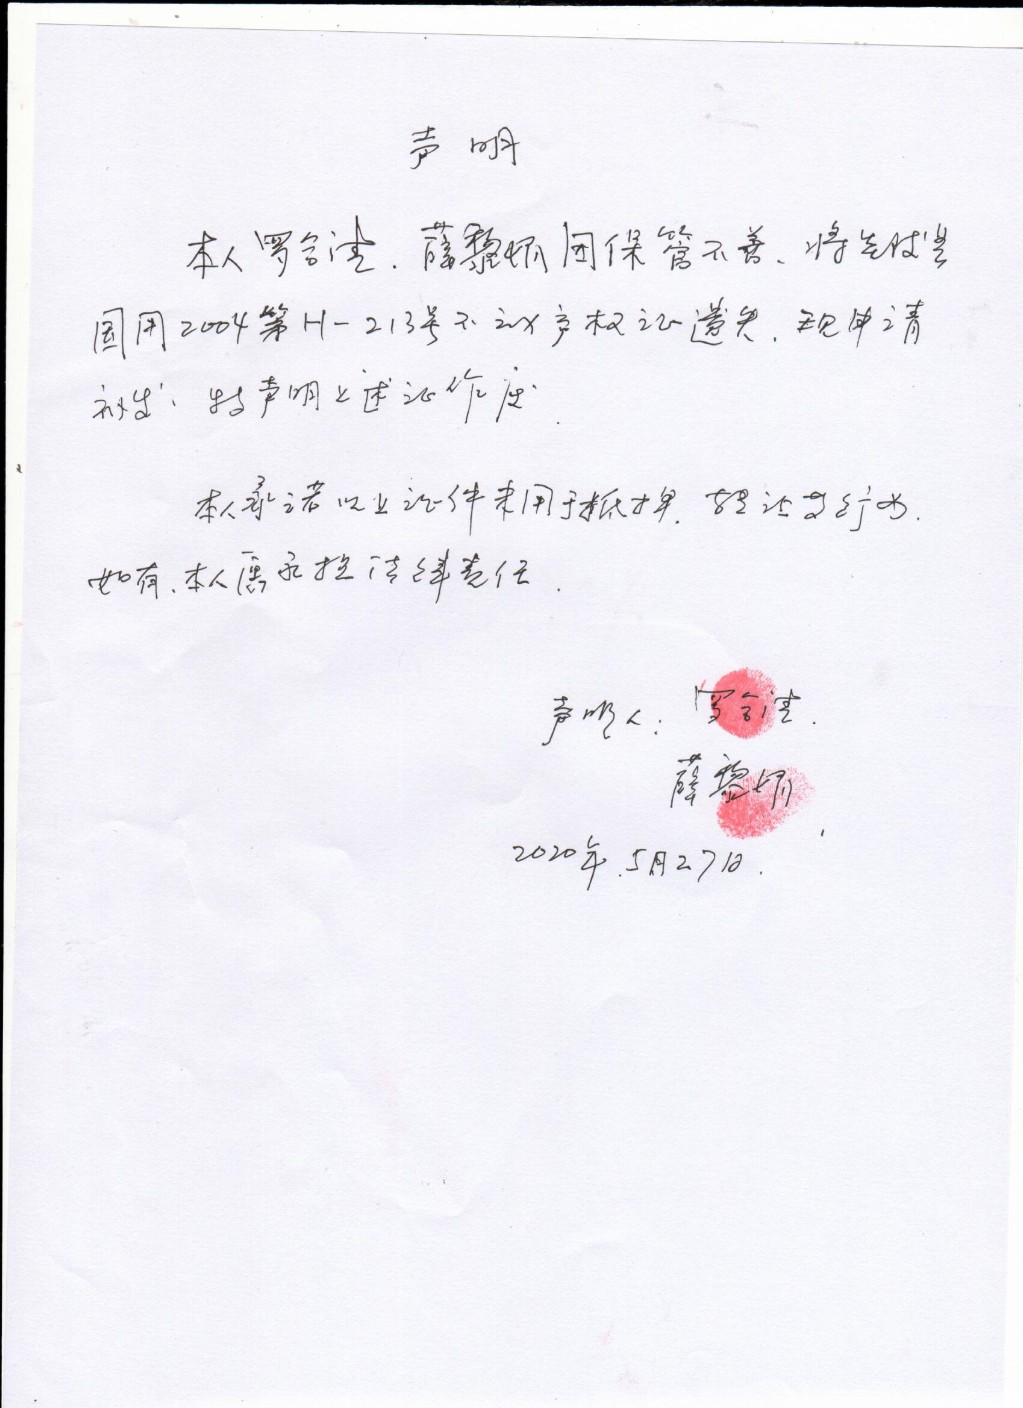 声明
本人罗会清、薛黎娟因保管不善、将
国用2004第H-213号不动产权证遗失、现申请
补发、特声明上述证作废.
本人承诺以上证件未用于抵押、行为.
如有、本人愿承担法律责任.
声明人：罗会清.
薛黎娟
2020年.5月27日.